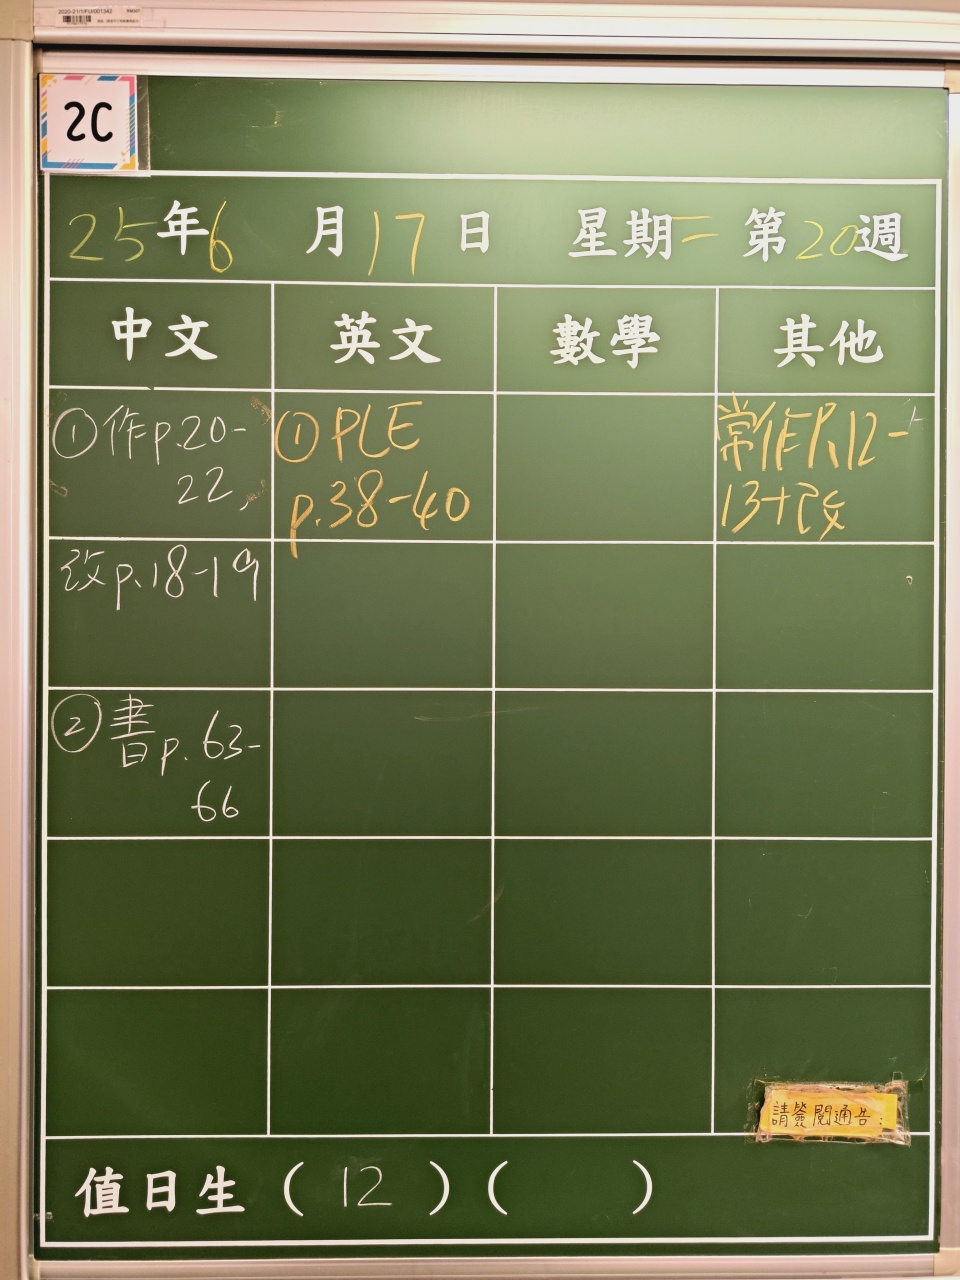 2020-21/1/FU/001342
2C
25年6月17日 星期二 第20週
中文 英文 數學 其他
①作p.20-
22,
改p.18-19
②書p.63-
66
①PLE
p.38-40
常作P.12-
13+改
請簽閱通告:
值日生(12)( )